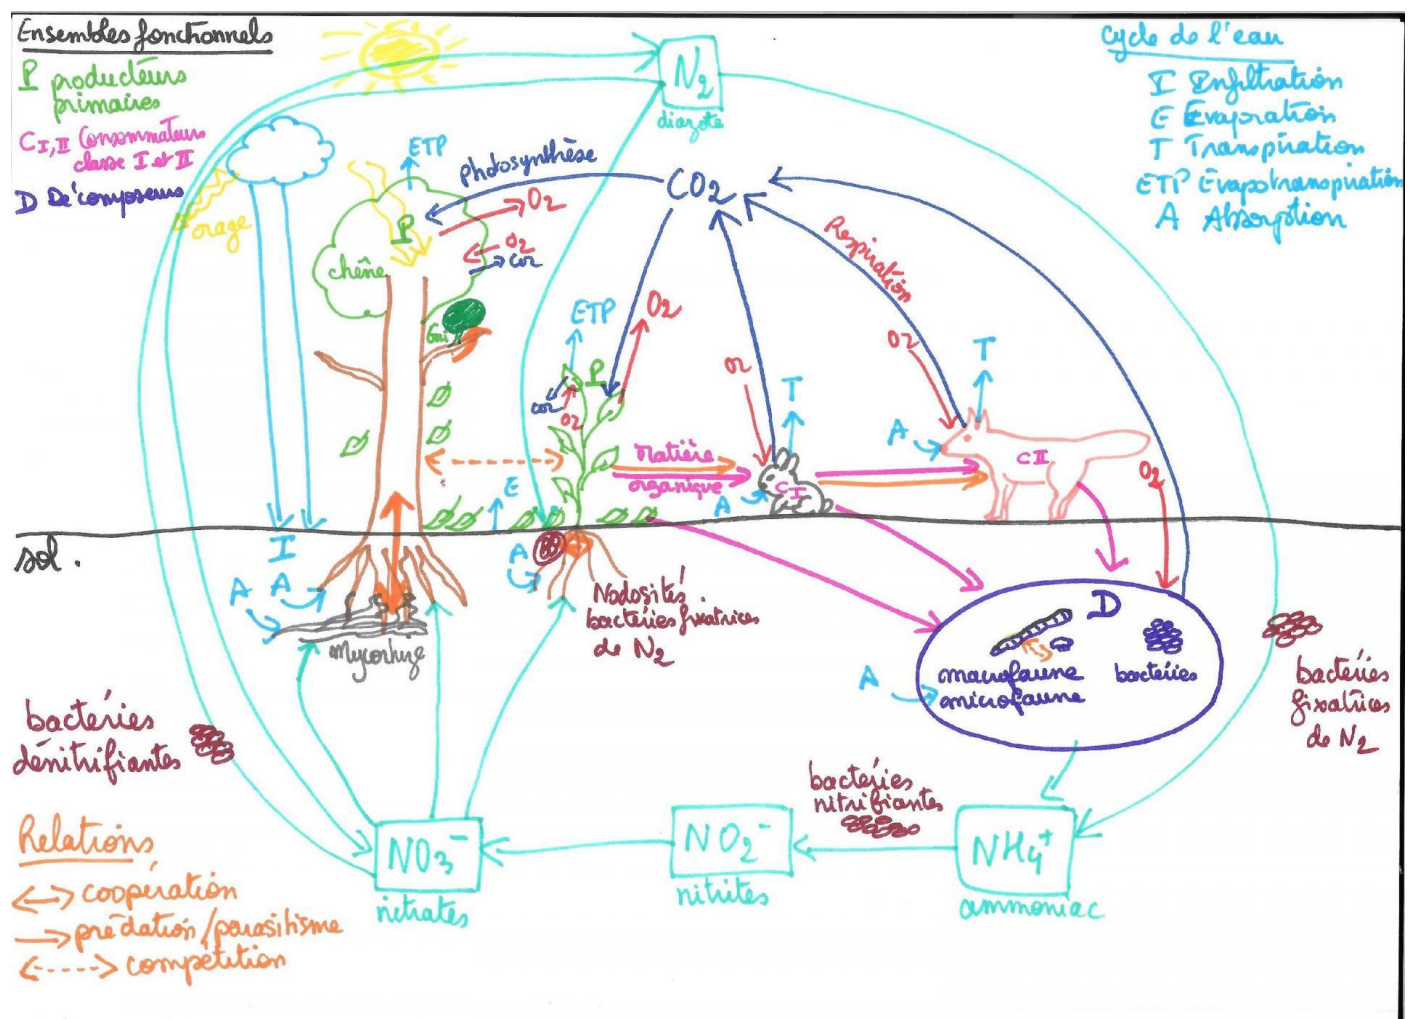 Ensembles fonctionnels
P producteurs
primaires
CI,II Consommateurs
classe I et II
D Décomposeurs
Cycle de l'eau
I Infiltration
E Evaporation
T Transpiration
ETP Evapotranspiration
A Absorption
N2
diazote
orage
ETP
photosynthèse
CO2
P
O2
O2
CO2
chêne
Gui
Respiration
ETP
O2
P
CO2
O2
O2
T
O2
T
A
Matière
organique
CI
A
CII
O2
E
sol.
I
A
A
A
mycorhize
Nodosités
bactéries fixatrices
de N2
D
macrofaune
microfaune
bactéries
A
bactéries
fixatrices
de N2
bactéries
dénitrifiantes
bactéries
nitrifiantes
NO3-
nitrates
NO2-
nitrites
NH4+
ammoniac
Relations
coopération
prédation/parasitisme
compétition